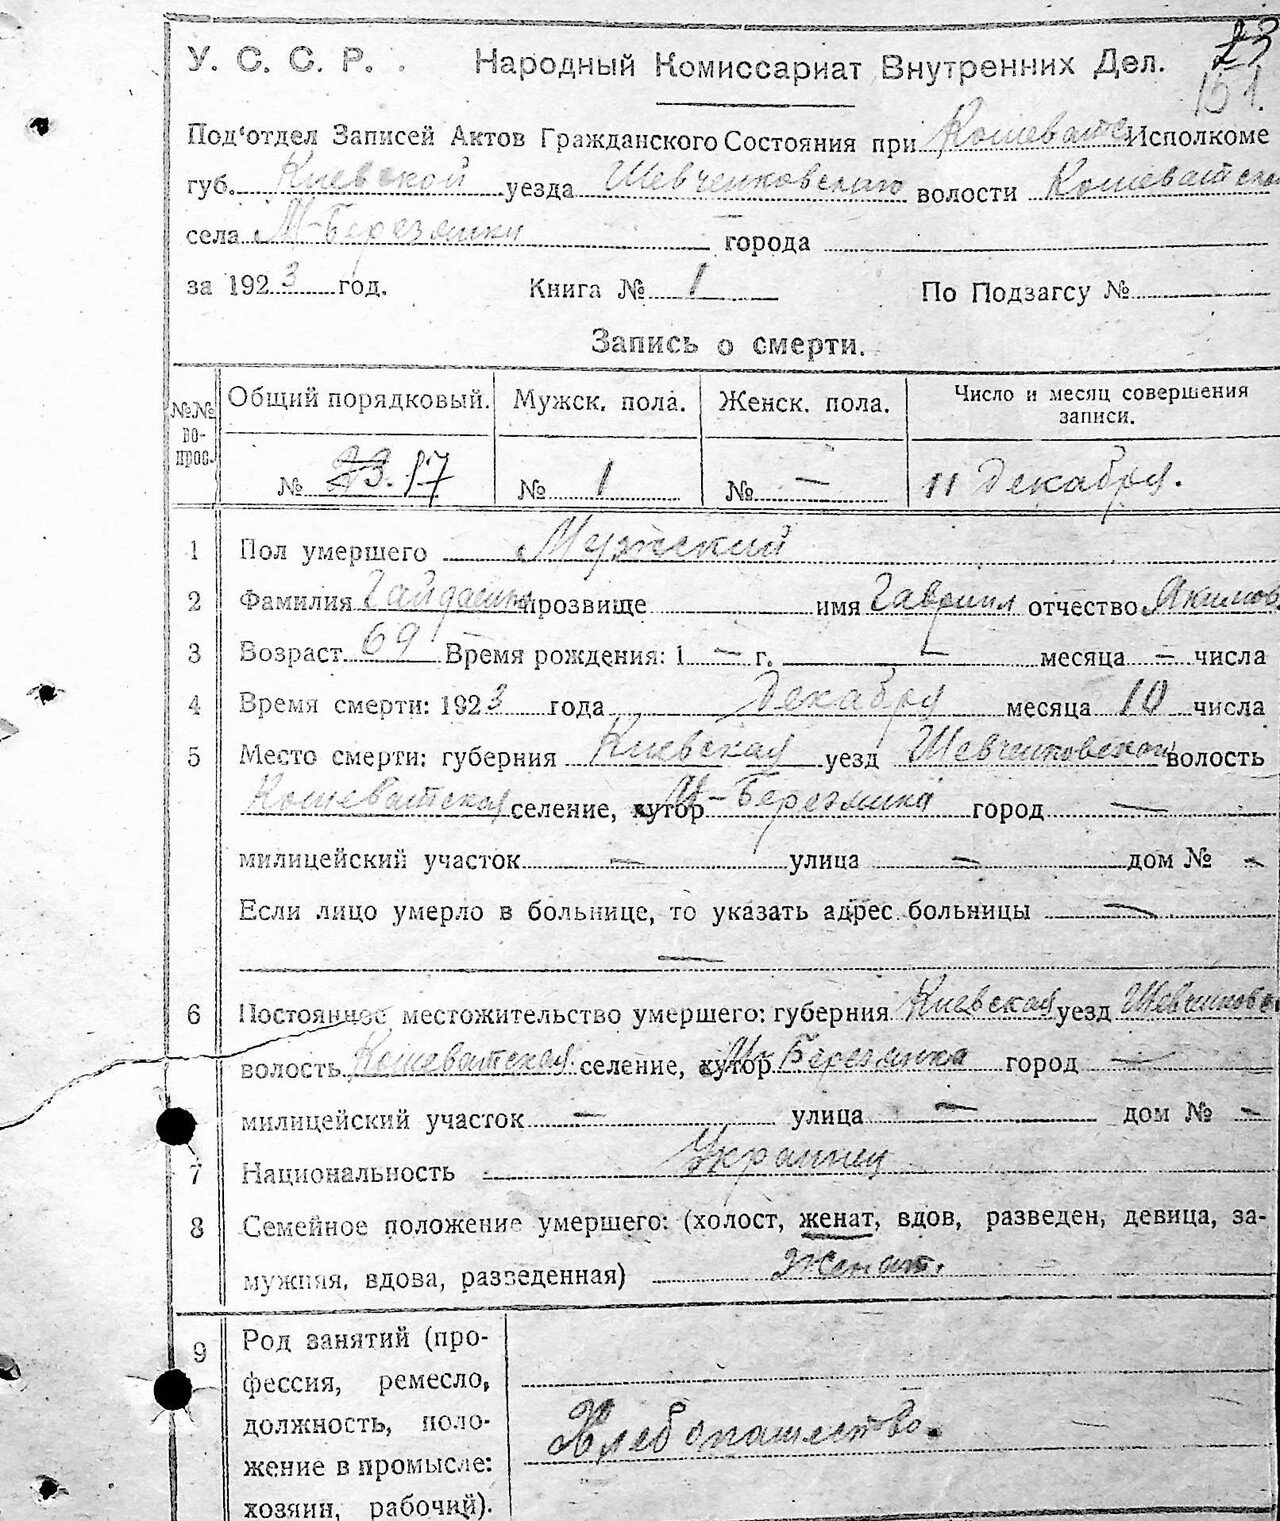 23
151.
У. С. С. Р. Народный Комиссариат Внутренних Дел.
Под'отдел Записей Актов Гражданского Состояния при Кошеват. Исполкоме
губ. Киевской уезда Шевченковского волости Кошеватской
села М-Березянки города
за 1923 год. Книга № 1 По Подзагсу №
Запись о смерти.
№№ во-прос. Общий порядковый. Мужск. пола. Женск. пола. Число и месяц совершения записи.
№ 23. 17 № 1 № — 11 Декабря.
1 Пол умершего Мужский
2 Фамилия Гайдаенко прозвище имя Гавриил отчество Якимов.
3 Возраст 69 Время рождения: 1 — г. — месяца — числа
4 Время смерти: 1923 года Декабря месяца 10 числа
5 Место смерти: губерния Киевская уезд Шевченковский волость
Кошеватская селение, хутор М-Березянка город —
милицейский участок — улица — дом № —
Если лицо умерло в больнице, то указать адрес больницы —
—
6 Постоянное местожительство умершего: губерния Киевская уезд Шевченковс
волость Кошеватская селение, хутор М. Березянка город —
милицейский участок — улица — дом № —
7 Национальность Украинец
8 Семейное положение умершего: (холост, женат, вдов, разведен, девица, за-
мужняя, вдова, разведенная) Женат.
9 Род занятий (про-
фессия, ремесло,
должность, поло-
жение в промысле:
хозяин, рабочий).
Хлебопашество.